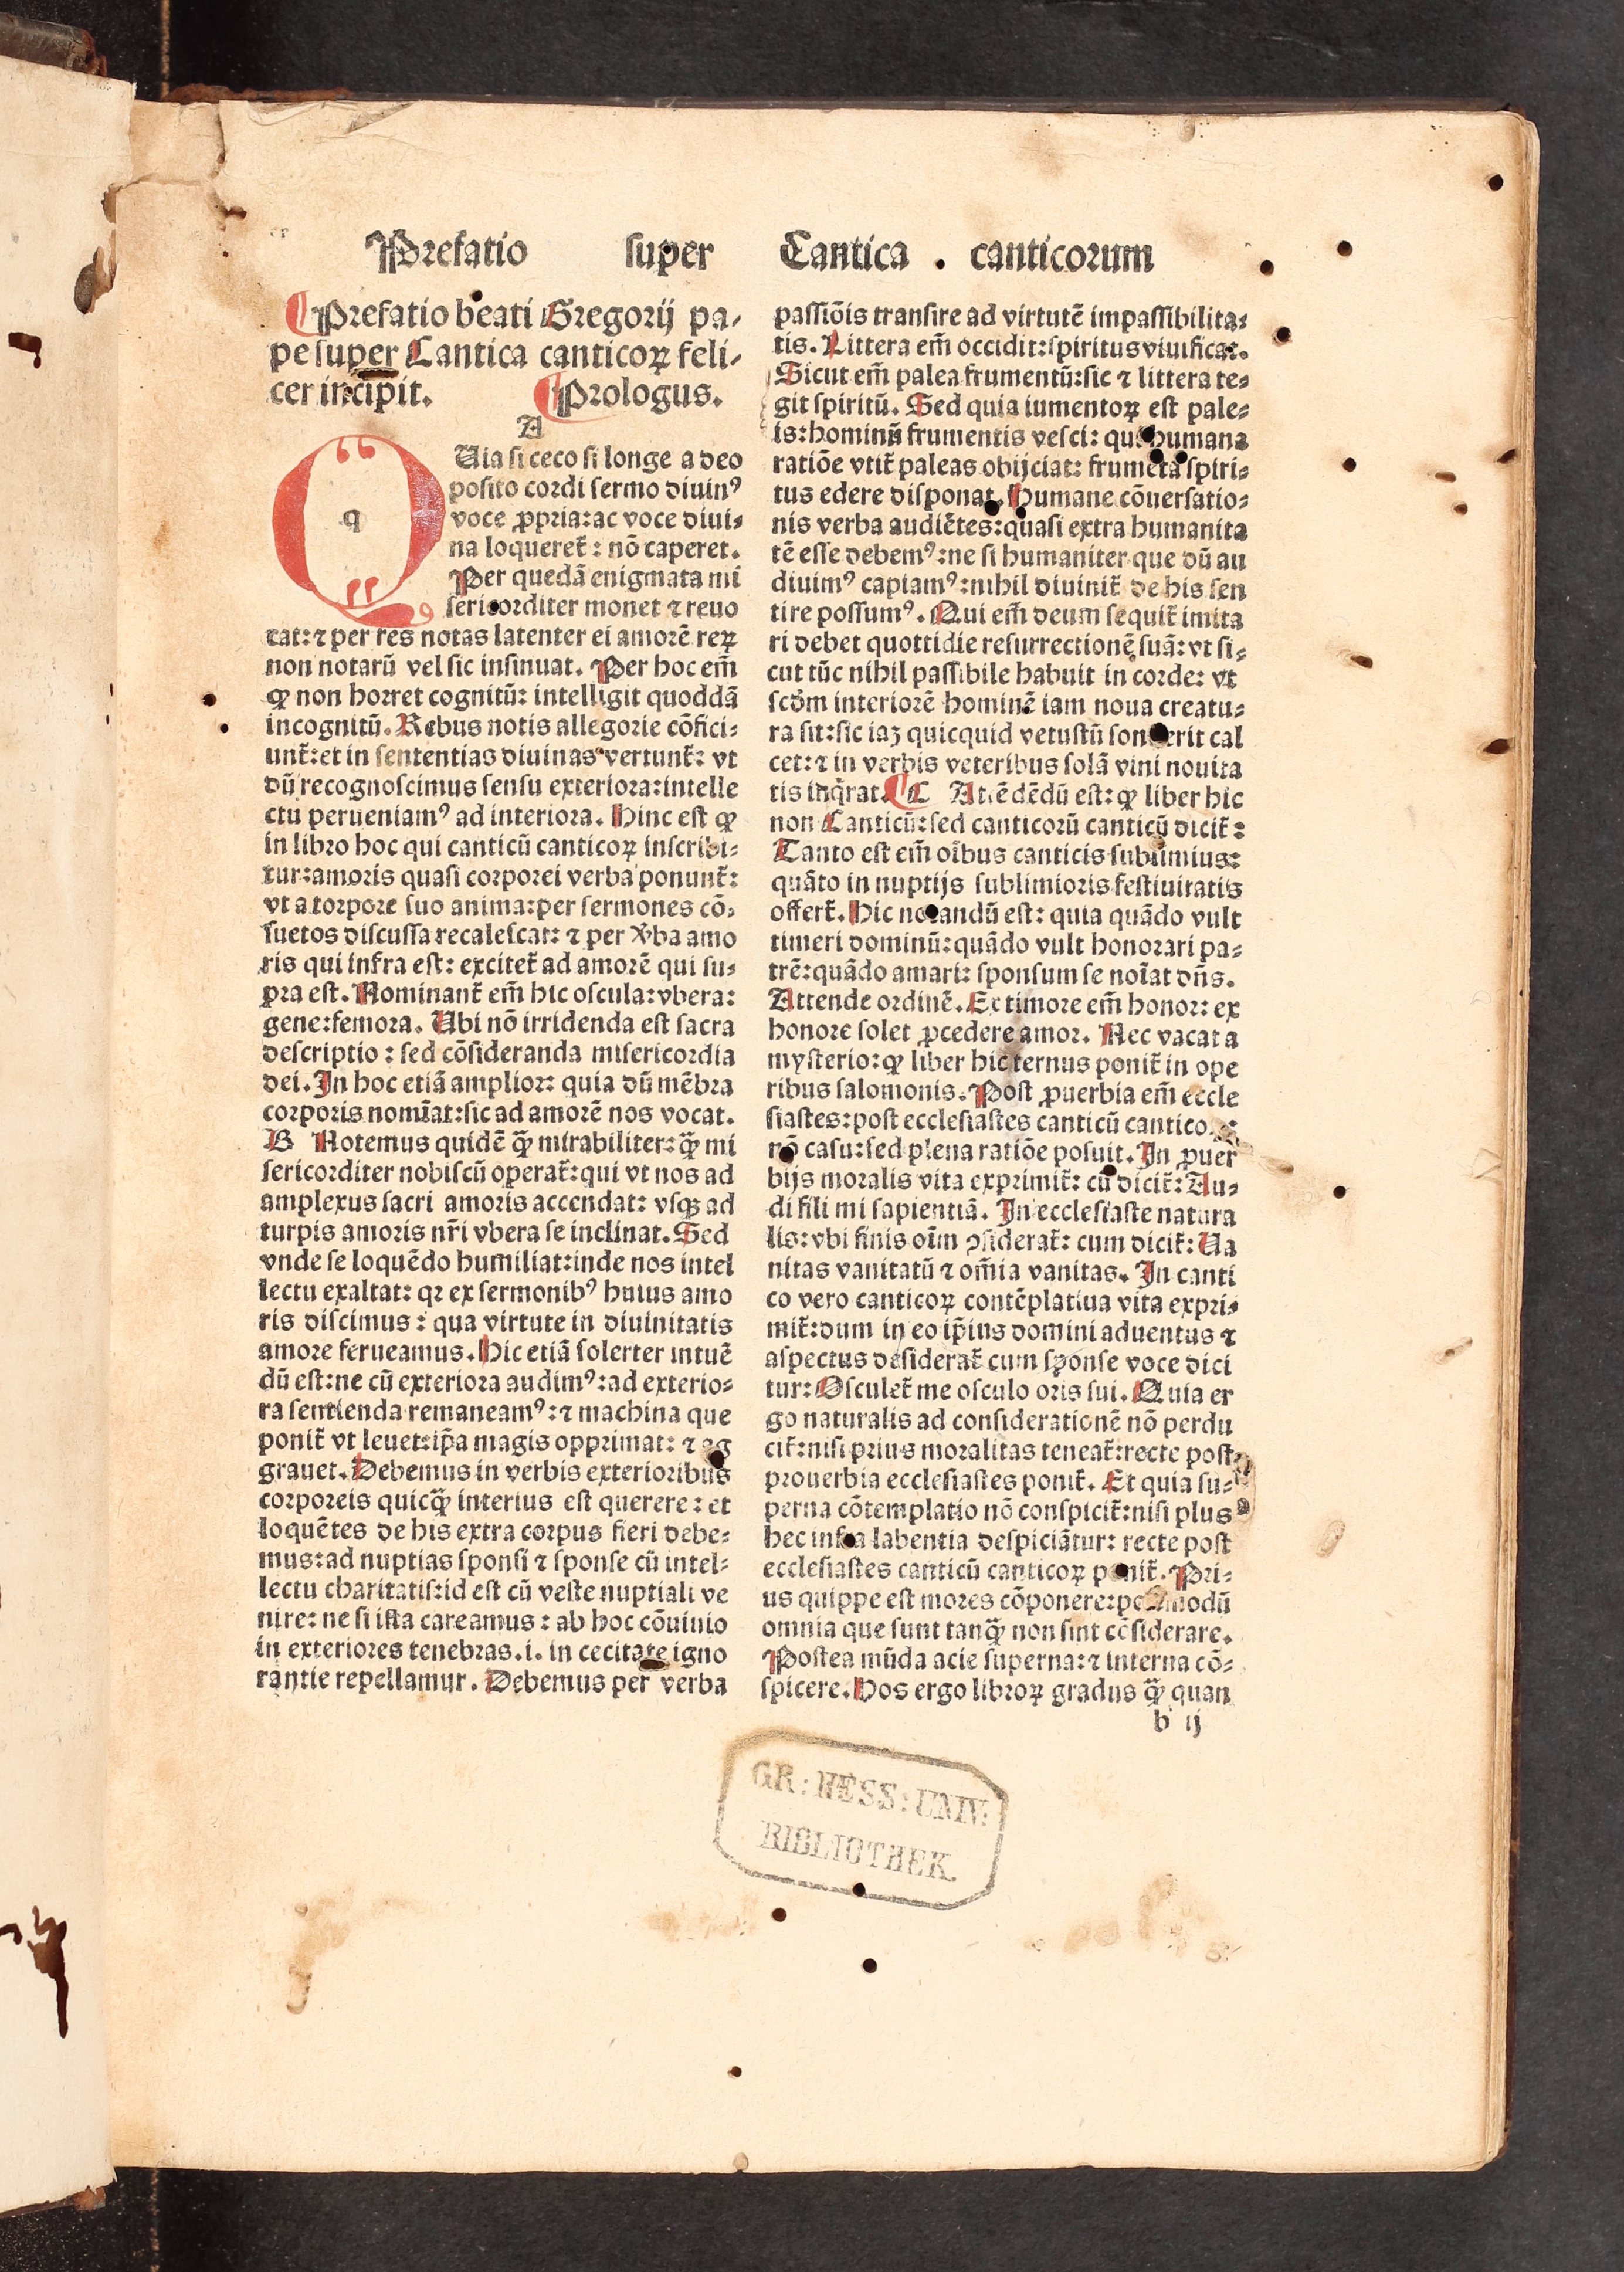 Prefatio super Cantica . canticorum
Prefatio beati Gregorij pa-
pe super Cantica canticoꝝ feli-
cer incipit. Prologus.
A
q
Uia si ceco si longe a deo
posito cordi sermo diuinꝰ
voce ꝓpria: ac voce diui-
na loqueret̃: nõ caperet.
Per quedã enigmata mi
sericorditer monet ⁊ reuo
cat: ⁊ per res notas latenter ei amorẽ reꝝ
non notarũ vel sic insinuat. Per hoc em̃
ꝙ non horret cognitũ: intelligit quoddã
incognitũ. Rebus notis allegorie cõfici-
unt̃: et in sententias diuinas vertunt̃: vt
dũ recognoscimus sensu exteriora: intelle
ctu perueniamꝰ ad interiora. Hinc est ꝙ
in libro hoc qui canticũ canticoꝝ inscribi-
tur: amoris quasi corporei verba ponunt̃:
vt a torpore suo anima: per sermones cõ-
suetos discussa recalescat: ⁊ per v̾ba amo
ris qui infra est: excitet̃ ad amorẽ qui su-
pra est. Nominant̃ em̃ hic oscula: vbera:
gene: femora. Ubi nõ irridenda est sacra
descriptio: sed cõsideranda misericordia
dei. In hoc etiã amplior: quia dũ mẽbra
corporis nomiat̃: sic ad amorẽ nos vocat.
B Notemus quidẽ ꝙ̃ mirabiliter: ꝙ̃ mi
sericorditer nobiscũ operat̃: qui vt nos ad
amplexus sacri amoris accendat: vsqꝫ ad
turpis amoris nr̃i vbera se inclinat. Sed
vnde se loquẽdo humiliat: inde nos intel
lectu exaltat: qꝛ ex sermonibꝰ huius amo
ris discimus: qua virtute in diuinitatis
amore ferueamus. Hic etiã solerter intuẽ
dũ est: ne cũ exteriora audimꝰ: ad exterio-
ra sentienda remaneamꝰ: ⁊ machina que
ponit̃ vt leuet: ip̃a magis opprimat: ⁊ ag
grauet. Debemus in verbis exterioribus
corporeis quicꝙ̃ interius est querere: et
loquẽtes de his extra corpus fieri debe-
mus: ad nuptias sponsi ⁊ sponse cũ intel-
lectu charitatis: id est cũ veste nuptiali ve
nire: ne si ista careamus: ab hoc cõuiuio
in exteriores tenebras. i. in cecitate igno
rantie repellamur. Debemus per verba
passiõis transire ad virtutẽ impassibilita-
tis. Littera em̃ occidit: spiritus viuificat.
Sicut em̃ palea frumentũ: sic ⁊ littera te-
git spiritũ. Sed quia iumentoꝝ est pale-
is: hominũ frumentis vesci: qui humana
ratiõe vtit̃ paleas obijciat: frumẽta spiri-
tus edere disponat. Humane cõuersatio-
nis verba audiẽtes: quasi extra humanita
tẽ esse debemꝰ: ne si humaniter que dũ au
diuimꝰ capiamꝰ: nihil diuinit̃ de his sen
tire possumꝰ. Qui em̃ deum sequit̃ imita
ri debet quottidie resurrectionẽ suã: vt si-
cut tũc nihil passibile habuit in corde: vt
scd̃m interiorẽ hominẽ iam noua creatu-
ra sit: sic iaꝫ quicquid vetustũ sonuerit cal
cet: ⁊ in verbis veteribus solã vini nouita
tis inq̃rat. C Attẽdẽdũ est: ꝙ liber hic
non Canticũ: sed canticorũ canticũ dicit̃:
Tanto est em̃ oĩbus canticis sublimius:
quãto in nuptijs sublimioris festiuitatis
offert̃. Hic notandũ est: quia quãdo vult
timeri dominũ: quãdo vult honorari pa-
trẽ: quãdo amari: sponsum se noĩat dñs.
Attende ordinẽ. Ex timore em̃ honor: ex
honore solet ꝓcedere amor. Nec vacat a
mysterio: ꝙ liber hic ternus ponit̃ in ope
ribus salomonis. Post ꝓuerbia em̃ eccle
siastes: post ecclesiastes canticũ cantico
nõ casu: sed plena ratiõe posuit. In ꝓuer
bijs moralis vita exprimit̃: cũ dicit̃: Au-
di fili mi sapientiã. In ecclesiaste natura
lis: vbi finis oĩm ꝯsiderat̃: cum dicit̃: Ua
nitas vanitatũ ⁊ om̃ia vanitas. In canti
co vero canticoꝝ contẽplatiua vita expri-
mit̃: dum in eo ip̃ius domini aduentus ⁊
aspectus desiderat̃ cum sponse voce dici
tur: Osculet̃ me osculo oris sui. Quia er
go naturalis ad considerationẽ nõ perdu
cit̃: nisi prius moralitas teneat̃: recte post
prouerbia ecclesiastes ponit̃. Et quia su-
perna cõtemplatio nõ conspicit̃: nisi plus
hec infra labentia despiciãtur: recte post
ecclesiastes canticũ canticoꝝ ponit̃. Pri-
us quippe est mores cõponere: postmodũ
omnia que sunt tanꝙ̃ non sint cõsiderare.
Postea mũda acie superna: ⁊ interna cõ-
spicere. Hos ergo libroꝝ gradus ꝙ̃ quan
b ij
GR: HESS: UNIV:
BIBLIOTHEK.